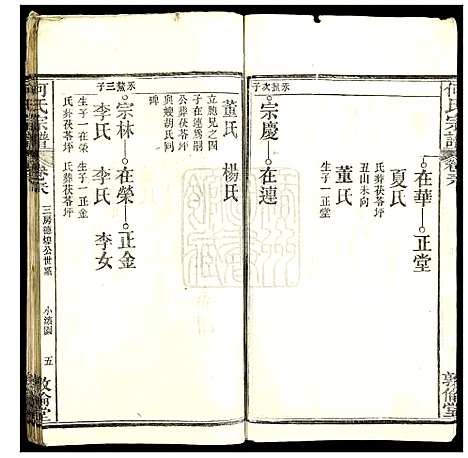 何氏宗譜
卷六
敦倫堂
在華
正堂
夏氏
氏葬茯苓坪
丑山未向
生子一正堂
永蓋次子
宗慶
在連
董氏
立胞兄之四
子在連爲嗣
公葬茯苓坪
與嫂胡氏同
碑
董氏
楊氏
永蓋三子
宗林
在榮
正金
李氏
李氏
李女
生子一在榮
氏葬茯苓坪
生子一正金
氏葬茯苓坪
何氏宗譜
卷六
三房德煌公世系
小溪園
五
敦倫堂